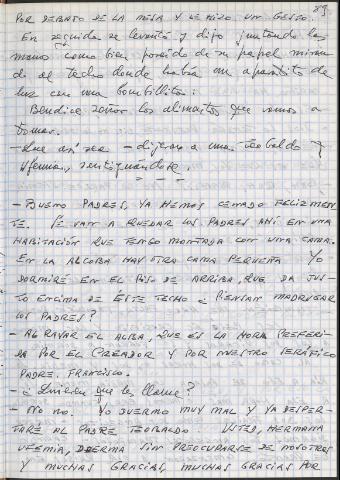 89
POR DEBAJO DE LA MESA Y LE HIZO UN GESTO.
En seguida se levantó y dijo juntando las
manos como bien poseído de su papel miran-
do el techo donde había un aparatito de
luz con una bombillita:
Bendice señor los alimentos que vamos a
tomar.
- Que así sea - dijeron a una Teobaldo y
Ufemia, santiguándose.
- BUENO PADRES, YA HEMOS CENADO FELIZMEN-
TE. SE VAN A QUEDAR LOS PADRES AHÍ EN UNA
HABITACIÓN QUE TENGO MONTADA CON UNA CAMA.
EN LA ALCOBA HAY OTRA CAMA PEQUEÑA. YO
DORMIRÉ EN EL PISO DE ARRIBA, QUE DA JUS-
TO ENCIMA DE ÉSTE TECHO ¿PIENSAN MADRUGAR
LOS PADRES?
- AL RAYAR EL ALBA, QUE ES LA HORA PREFERI-
DA POR EL CREADOR Y POR NUESTRO SERÁFICO
PADRE FRANCISCO.
- ¿Quieren que les llame?
- NO NO. YO DUERMO MUY MAL Y YA DESPER-
TARÉ AL PADRE TEOBALDO. USTED, HERMANA
UFEMIA, DUERMA SIN PREOCUPARSE DE NOSOTROS
Y MUCHAS GRACIAS, MUCHAS GRACIAS POR